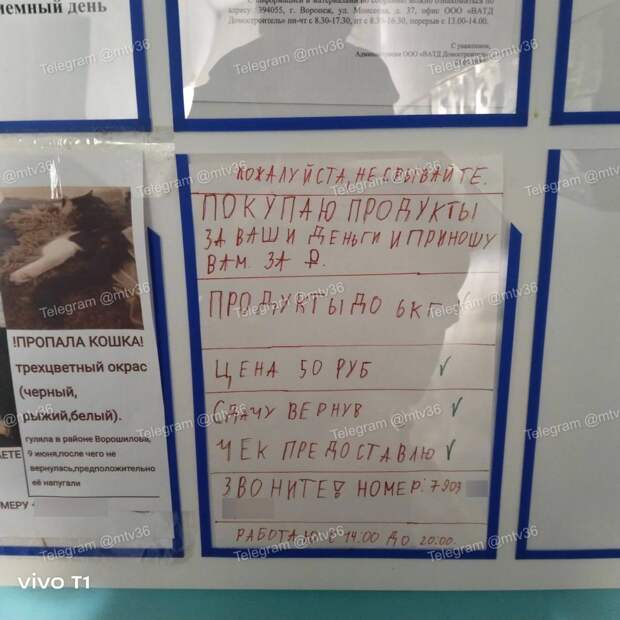 емный день
адресу: 394055, г. Воронеж, ул. Моисеева, д. 37, офис ООО «ВАТД
Домостроитель» пн-чт с 8.30-17.30, пт с 8.30-16.30, перерыв с 13.00-14.00.
С уважением,
Администрация ООО «ВАТД Домостроитель»
!ПРОПАЛА КОШКА!
трехцветный окрас
(черный,
рыжий,белый).
гуляла в районе Ворошилова,
9 июня,после чего не
вернулась,предположительно
её напугали
АЕТЕ
МЕРУ
ПОЖАЛУЙСТА, НЕ СРЫВАЙТЕ.
ПОКУПАЮ ПРОДУКТЫ
ЗА ВАШИ ДЕНЬГИ И ПРИНОШУ
ВАМ ЗА ₽.
ПРОДУКТЫ ДО 6КГ ✓
ЦЕНА 50 РУБ ✓
СДАЧУ ВЕРНУ ✓
ЧЕК ПРЕДОСТАВЛЮ ✓
ЗВОНИТЕ! НОМЕР: 7903
РАБОТАЮ С 14:00 ДО 20:00.
Telegram @mtv36
vivo T1